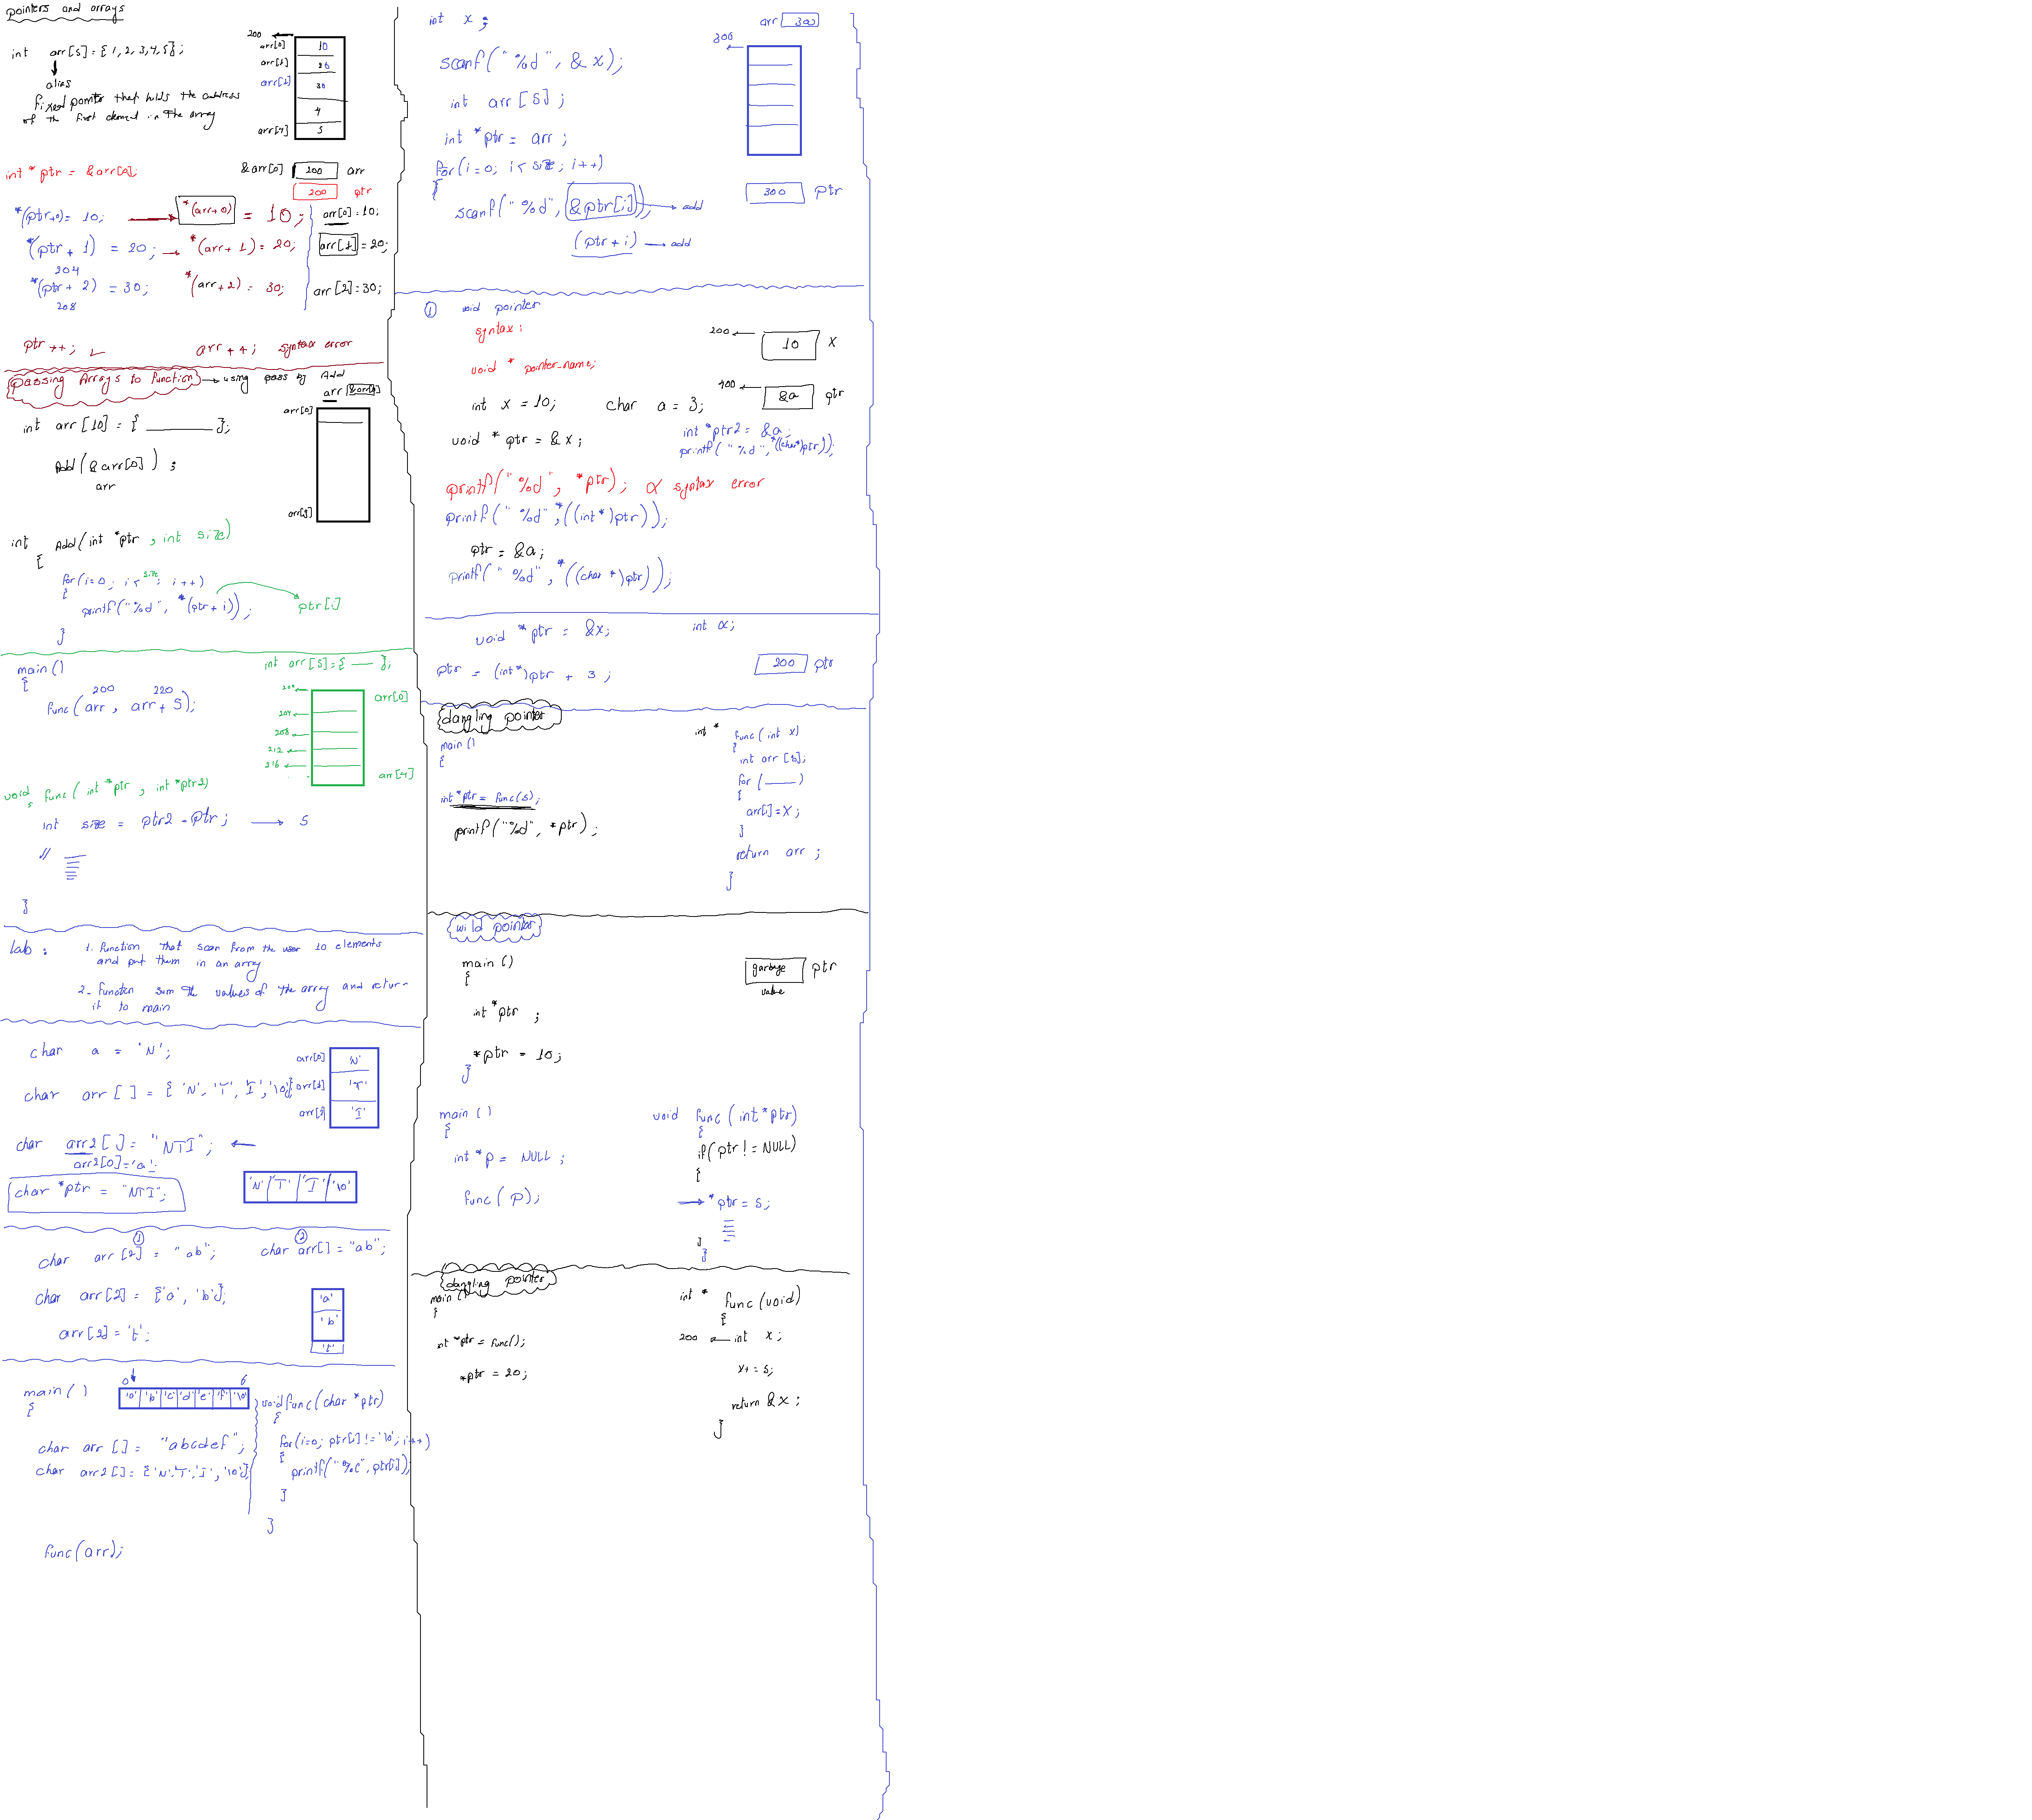 pointers and arrays
int arr[5] = { 1, 2, 3, 4, 5};
alias
fixed pointer that holds the address
of the first element in the array
200
arr[0] 10
arr[1] 20
arr[2] 30
4
arr[4] 5
int * ptr = &arr[0];
&arr[0] 200 arr
200 ptr
*(ptr+0) = 10; *(arr+0) = 10; arr[0] = 10;
*(ptr + 1) = 20; *(arr + 1) = 20; arr[1] = 20;
204
*(ptr + 2) = 30; *(arr + 2) = 30; arr[2] = 30;
208
ptr ++; arr ++; syntax error
passing Arrays to function using pass by Add
arr &arr[0]
int arr [10] = { };
arr[0]
Add (&arr[0]) ;
arr
arr[9]
int Add (int *ptr , int size)
{
for (i=0 ; i < size ; i++)
{
printf("%d", *(ptr + i)); ptr[i]
}
main()
{
int arr [5] = { };
200 220
func (arr , arr + 5);
200 arr[0]
204
208
212
216 arr[4]
void func ( int *ptr , int *ptr2)
{
int size = ptr2 - ptr ; 5
//
}
lab : 1. function that scan from the user 10 elements
and put them in an array
2- function sum the values of the array and retur-
it to main
char a = 'N';
char arr [ ] = { 'N', 'T', 'I', '\0'};
arr[0] 'N'
arr[1] 'T'
arr[2] 'I'
char arr2 [ ] = "NTI" ;
arr2[0] = 'a';
char *ptr = "NTI";
'N' 'T' 'I' '\0'
1 2
char arr [2] = "ab"; char arr[] = "ab";
char arr[2] = {'a', 'b'};
arr[2] = 't';
'a'
'b'
't'
main ( )
{
0 6
'a' 'b' 'c' 'd' 'e' 'f' '\0'
char arr [] = "abcdef" ;
char arr2 [] = {'N','T','I', '\0'};
void func (char *ptr)
{
for (i=0; ptr[i] != '\0'; i++)
{
printf("%c", ptr[i]);
}
}
func (arr);
int x ;
scanf( "%d" , & x);
int arr [5] ;
int *ptr = arr ;
for (i = 0; i < size ; i++)
{
scanf( "%d", &ptr[i]); add
(ptr + i) add
arr 300
300
300 ptr
1 void pointer
syntax :
void * pointer-name;
200 10 X
400 &a ptr
int x = 10; char a = 3;
void * ptr = & x ; int *ptr2 = &a ;
printf ( "%d", *((char*)ptr));
printf( "%d" , *ptr) ; syntax error
printf( "%d", *((int*)ptr));
ptr = &a;
printf( "%d", *((char *)ptr));
void *ptr = &x; int x;
ptr = (int*)ptr + 3 ; 200 ptr
dangling pointer
main ()
{
int *ptr = func(5);
printf("%d", *ptr) ;
int * func ( int x)
{
int arr [5];
for ( )
{
arr[i] = X ;
}
return arr ;
}
wild pointer
main ()
{
int *ptr ;
*ptr = 10;
}
garbage ptr
value
main ( )
{
int *p = NULL ;
func ( p);
void func (int *ptr)
{
if( ptr != NULL)
{
*ptr = 5;
}
}
dangling pointer
main ()
{
int *ptr = func();
*ptr = 20;
int * func (void)
{
200 int x ;
x+ = 5;
return & x ;
}